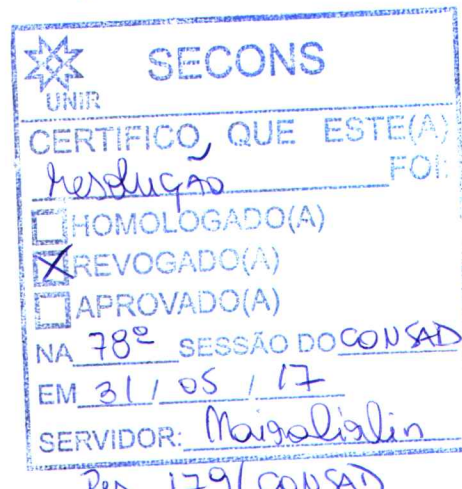 SECONS
UNIR
CERTIFICO, QUE ESTE(A)
resolução FOI:
HOMOLOGADO(A)
REVOGADO(A)
APROVADO(A)
NA 78ª SESSÃO DO CONSAD
EM 31 / 05 / 17
SERVIDOR:
179/CONSAD